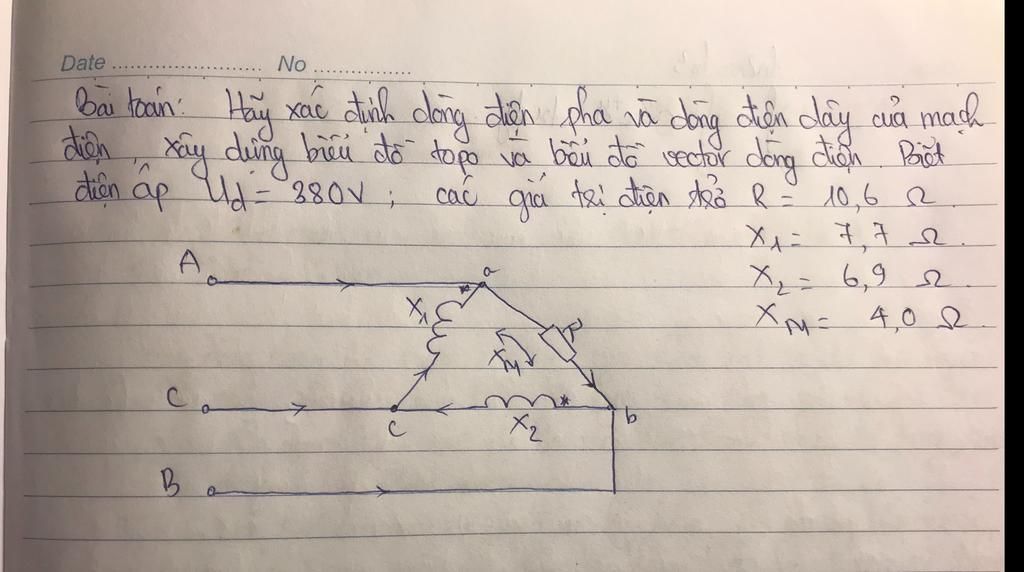 Date ........................ No ...............
Bài toán: Hãy xác định dòng điện pha và dòng điện dây của mạch
điện, xây dựng biểu đồ topo và biểu đồ vector dòng điện. Biết
điện áp Ud = 380V ; các giá trị điện trở R = 10,6 Ω.
X1 = 7,7 Ω.
X2 = 6,9 Ω.
XM = 4,0 Ω.
A
a
*
X1
R
XM
C
c
*
b
X2
B